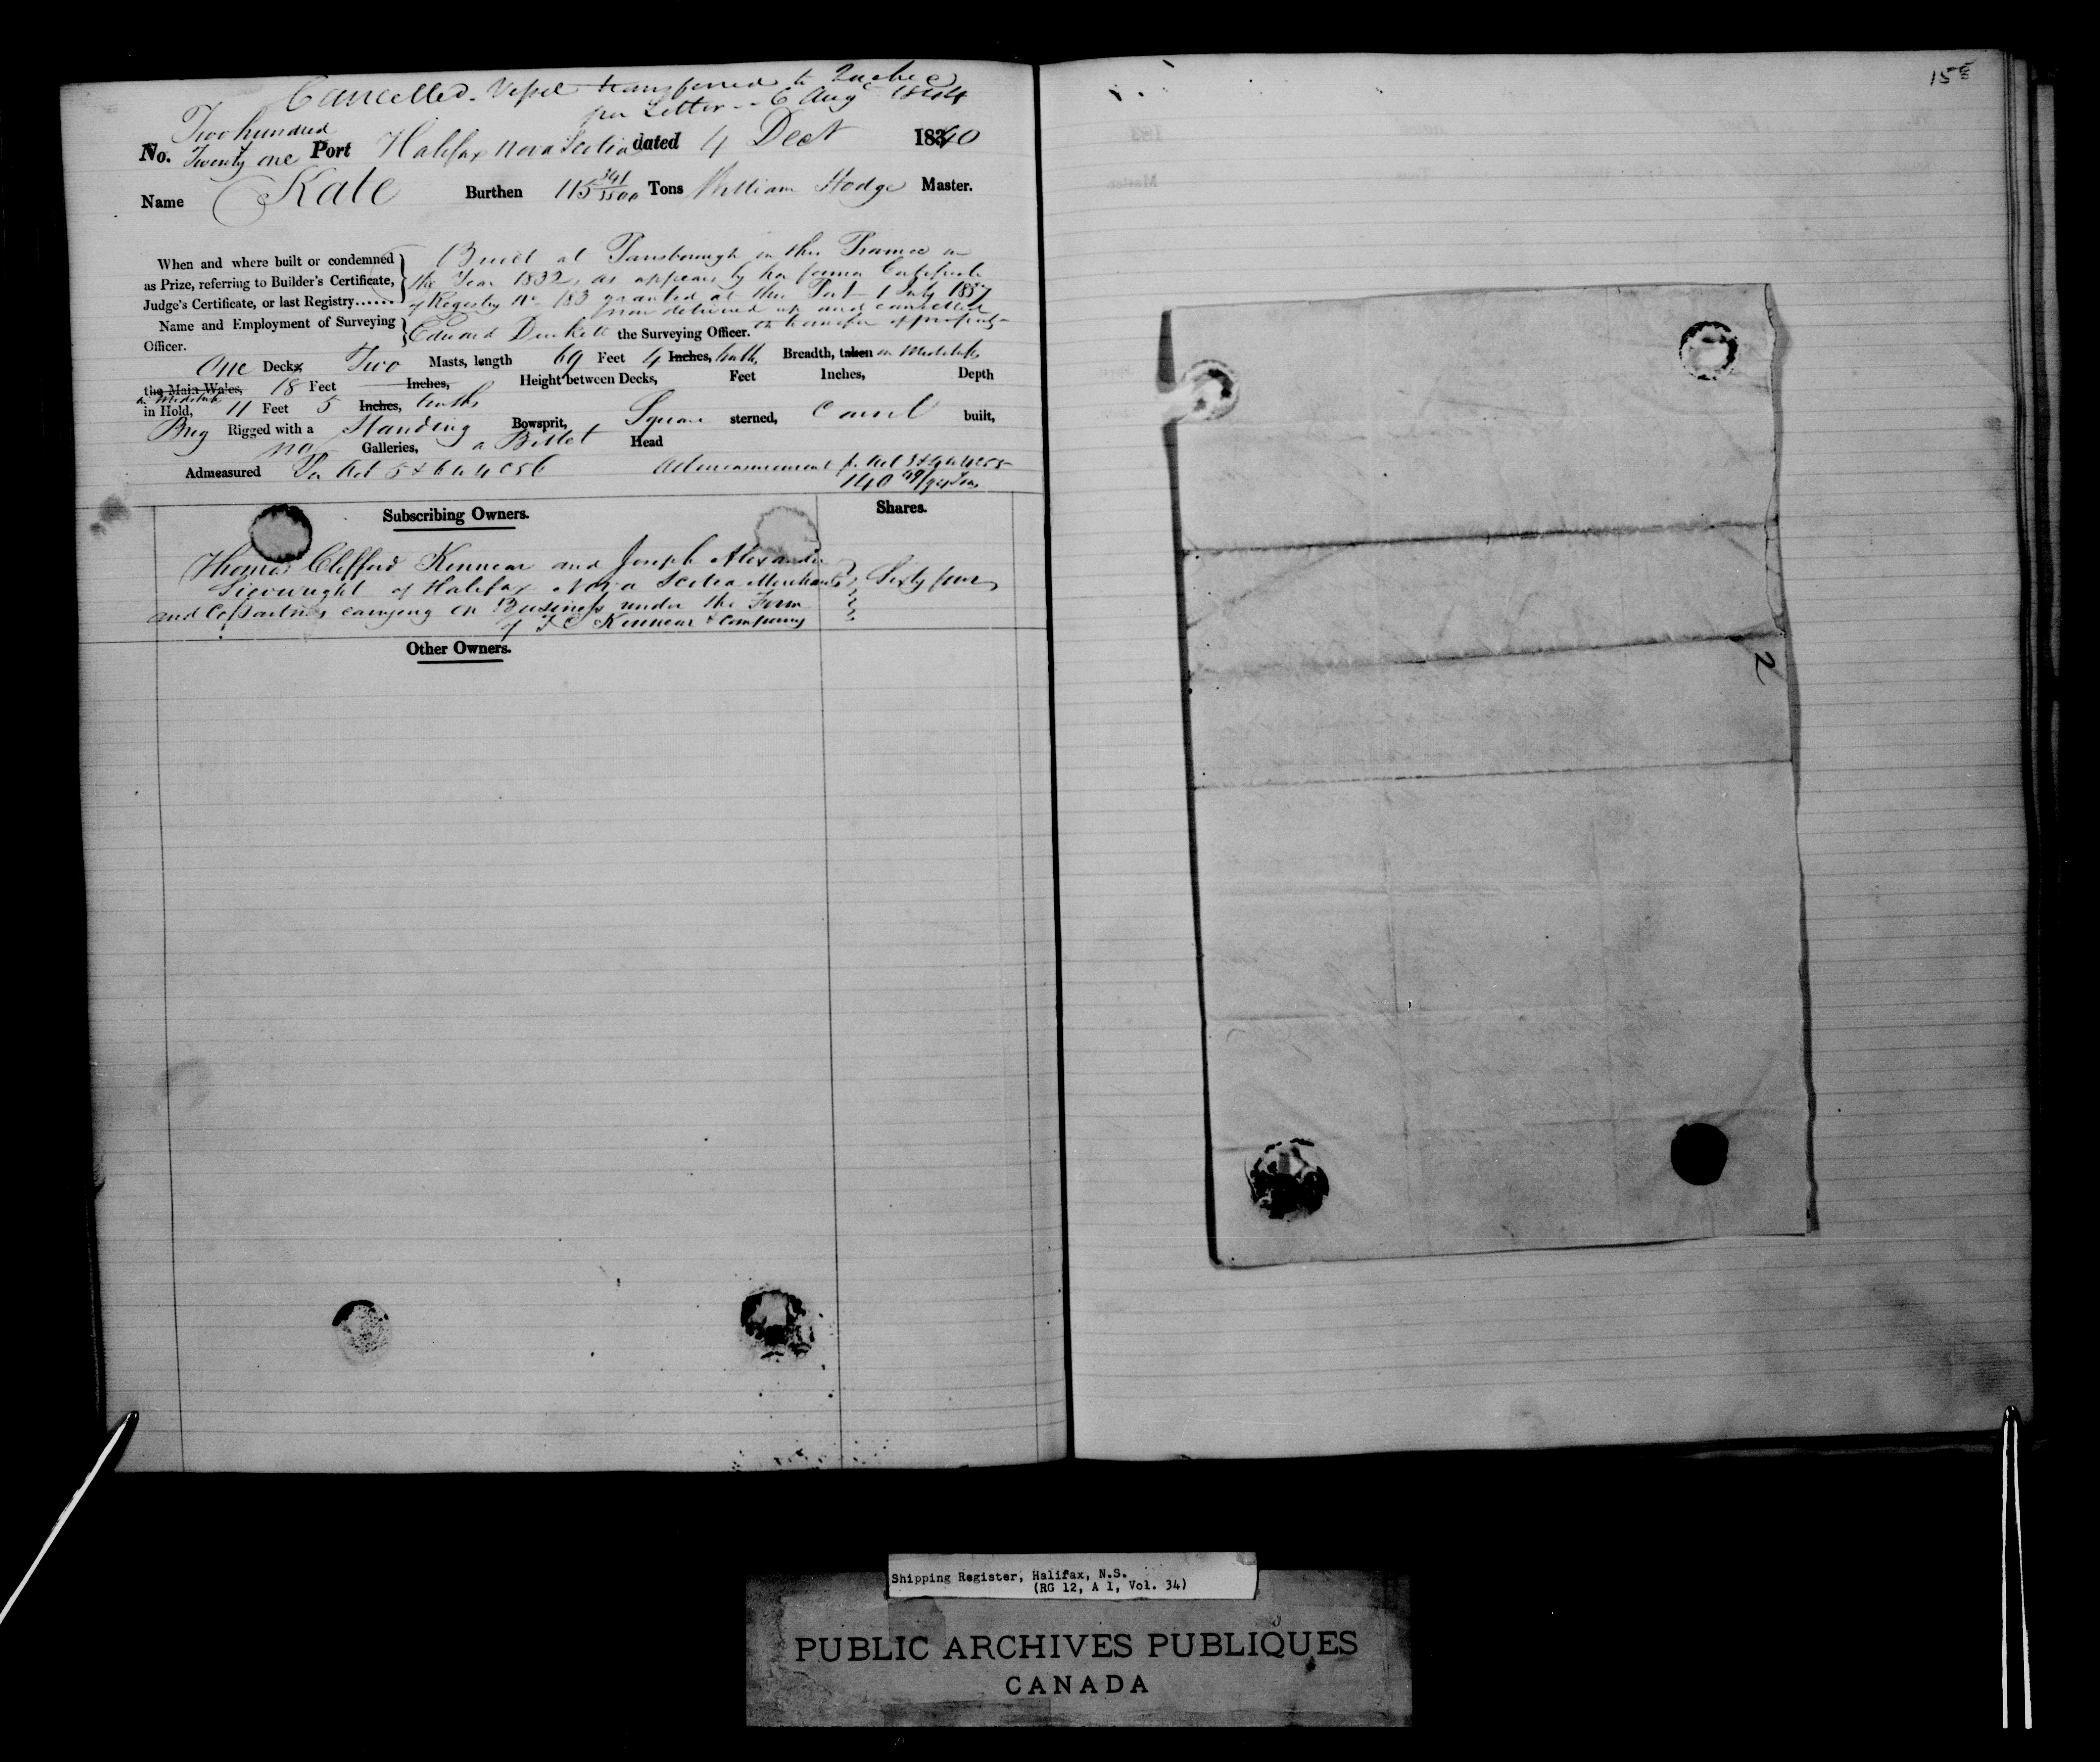 Cancelled. Vessel transferred to Quebec
per Letter -- 6 Aug 1844
Two hundred
No. Twenty one Port Halifax Nova Scotia dated 4 Dect 18340
Name Kate Burthen 115 341/3500 Tons William Hodge Master.
When and where built or condemned
as Prize, referring to Builder's Certificate,
Judge's Certificate, or last Registry......
Built at Parrsborough in this Province in
the Year 1832, as appears by her former Certificate
of Registry No 183 granted at this Port 1 July 1837
now delivered up and cancelled
Name and Employment of Surveying
Officer.
Edward Duckett the Surveying Officer. on transfer of property
One Decks Two Masts, length 69 Feet 4 Inches, tenths, Breadth, taken in Midships
the Main Wales, 18 Feet Inches, Height between Decks, Feet Inches, Depth
in Midships
in Hold, 11 Feet 5 Inches, tenths
Brig Rigged with a Standing Bowsprit, Square sterned, Carvel built,
no Galleries, a Billet Head
Admeasured Per Act 5 & 6 W 4 C 56 Admeasurement pr Act 3 & 4 W 4 C 55
140 49/94 Tons
Subscribing Owners. Shares.
Thomas Clifford Kinnear and Joseph Alexander
Sievwright of Halifax Nova Scotia Merchants Sixty four
and Copartners carrying on Business under the Firm
of T C Kinnear & Company
Other Owners.
155
2
Shipping Register, Halifax, N.S.
(RG 12, A 1, Vol. 34)
PUBLIC ARCHIVES PUBLIQUES
CANADA